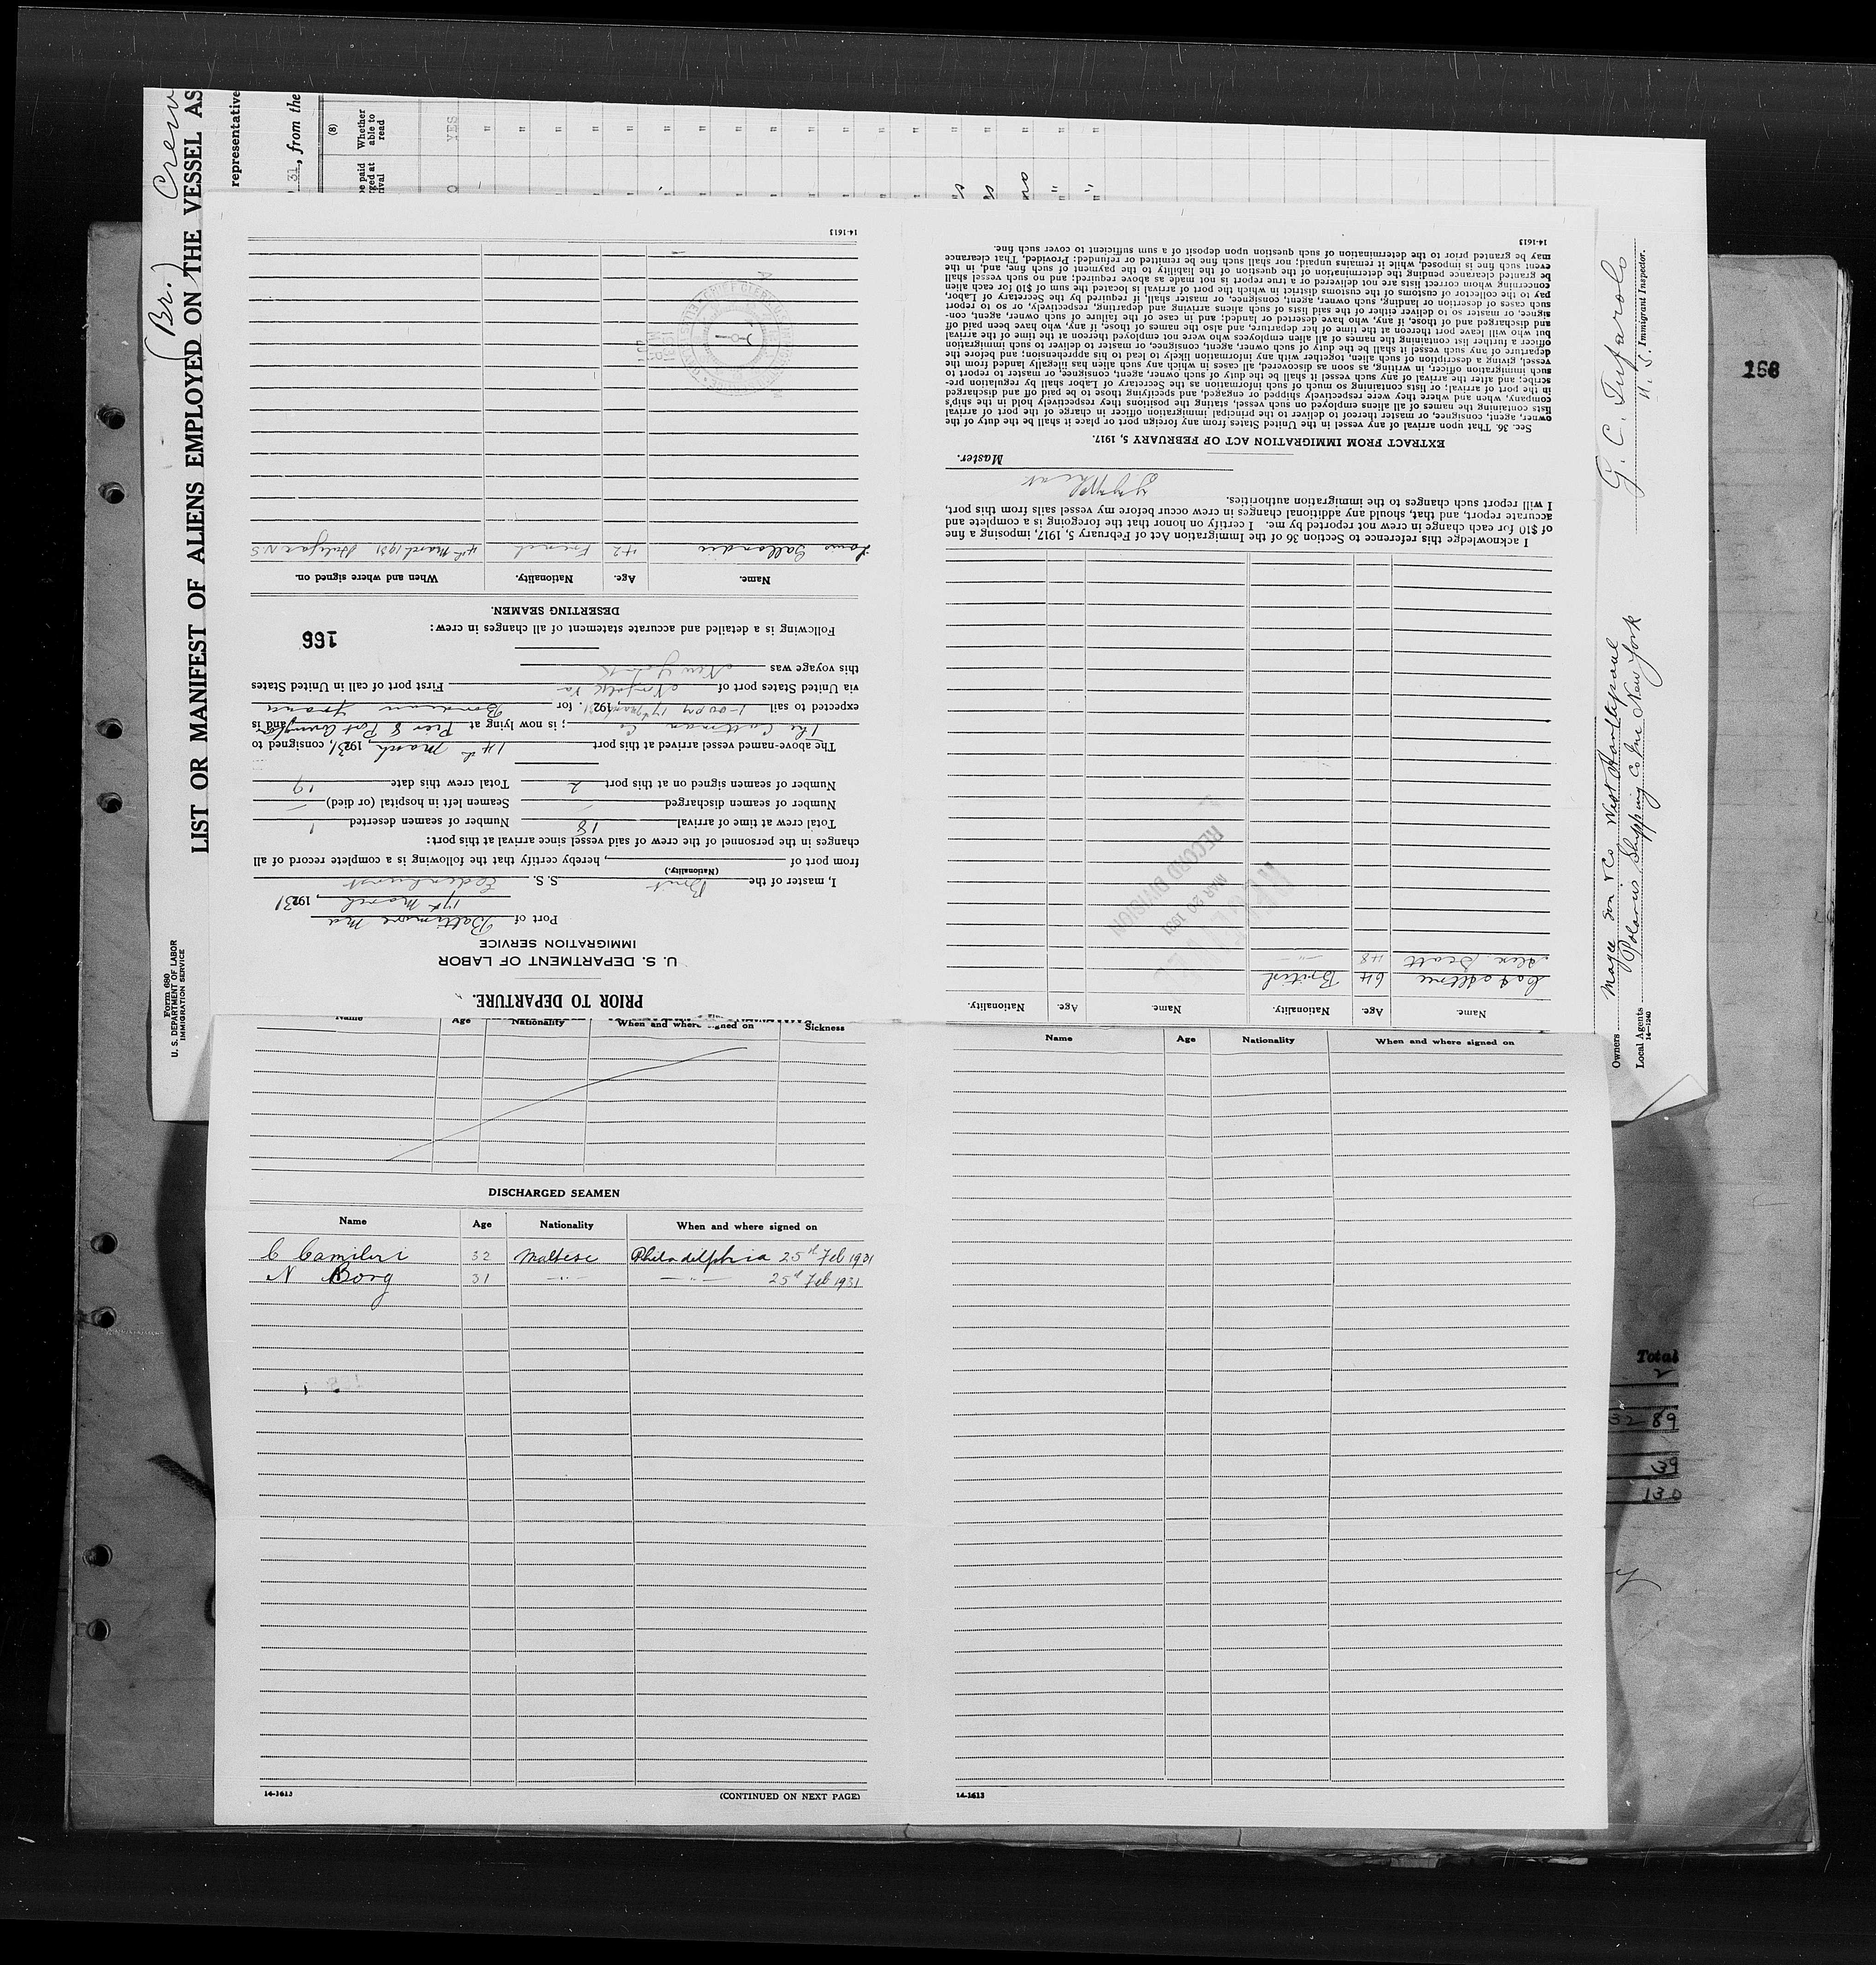 (Br.) Crew
LIST OR MANIFEST OF ALIENS EMPLOYED ON THE VESSEL AS
representative
31, from the
(8)
Whether
able to
read
YES
Form 680
U. S. DEPARTMENT OF LABOR
IMMIGRATION SERVICE
PRIOR TO DEPARTURE.
U. S. DEPARTMENT OF LABOR
IMMIGRATION SERVICE
Port of Baltimore Md
17th March, 1931
I, master of the Brit S. S.
(Nationality.)
from port of , hereby certify that the following is a complete record of all
changes in the personnel of the crew of said vessel since arrival at this port:
Total crew at time of arrival 18 Number of seamen deserted 1
Number of seamen discharged — Seamen left in hospital (or died) —
Number of seamen signed on at this port 2 Total crew this date 19
The above-named vessel arrived at this port 14th March, 1931, consigned to
The Co; is now lying at Pier 8 Pt and is
expected to sail 1-00 pm 17th March, 1931. for
via United States port of Norfolk Va First port of call in United States
this voyage was New York
166
Following is a detailed and accurate statement of all changes in crew:
DESERTING SEAMEN.
Name. Age. Nationality. When and where signed on.
Louis 42 French 4th March 1931 Halifax N.S
14-1613
Name. Age. Nationality. Name. Age. Nationality.
64 British
Alex Scott 48 — " —
RECEIVED
MAR 20 1931
RECORD DIVISION
I acknowledge this reference to Section 36 of the Immigration Act of February 5, 1917, imposing a fine
of $10 for each change in crew not reported by me. I certify on honor that the foregoing is a complete and
accurate report, and that, should any additional changes in crew occur before my vessel sails from this port,
I will report such changes to the immigration authorities.
Master.
EXTRACT FROM IMMIGRATION ACT OF FEBRUARY 5, 1917.
Sec. 36. That upon arrival of any vessel in the United States from any foreign port or place it shall be the duty of the
owner, agent, consignee, or master thereof to deliver to the principal immigration officer in charge of the port of arrival
lists containing the names of all aliens employed on such vessel, stating the positions they respectively hold in the ship's
company, when and where they were respectively shipped or engaged, and specifying those to be paid off and discharged
in the port of arrival; or lists containing so much of such information as the Secretary of Labor shall by regulation pre-
scribe; and after the arrival of any such vessel it shall be the duty of such owner, agent, consignee, or master to report to
such immigration officer, in writing, as soon as discovered, all cases in which any such alien has illegally landed from the
vessel, giving a description of such alien, together with any information likely to lead to his apprehension; and before the
departure of any such vessel it shall be the duty of such owner, agent, consignee, or master to deliver to such immigration
officer a further list containing the names of all alien employees who were not employed thereon at the time of the arrival
but who will leave port thereon at the time of her departure, and also the names of those, if any, who have been paid off
and discharged and of those, if any, who have deserted or landed; and in case of the failure of such owner, agent, con-
signee, or master so to deliver either of the said lists of such aliens arriving and departing, respectively, or so to report
such cases of desertion or landing, such owner, agent, consignee, or master shall, if required by the Secretary of Labor,
pay to the collector of customs of the customs district in which the port of arrival is located the sum of $10 for each alien
concerning whom correct lists are not delivered or a true report is not made as above required; and no such vessel shall
be granted clearance pending the determination of the question of the liability to the payment of such fine, and, in the
event such fine is imposed, while it remains unpaid; nor shall such fine be remitted or refunded: Provided, That clearance
may be granted prior to the determination of such question upon deposit of a sum sufficient to cover such fine.
14-1613
U. S. Immigrant Inspector.
Owners Magee Son & Co West Hartlepool
Local Agents Polarius Shipping Co Inc New York
14-1240
166
Name Age Nationality When and where signed on Sickness
DISCHARGED SEAMEN
Name Age Nationality When and where signed on
C Camileri 32 Maltese Philadelphia 25th Feb 1931
N Borg 31 — " — — " — 25th Feb 1931
14-1613 (CONTINUED ON NEXT PAGE)
Name Age Nationality When and where signed on
14-1613
Total
32 89
39
130